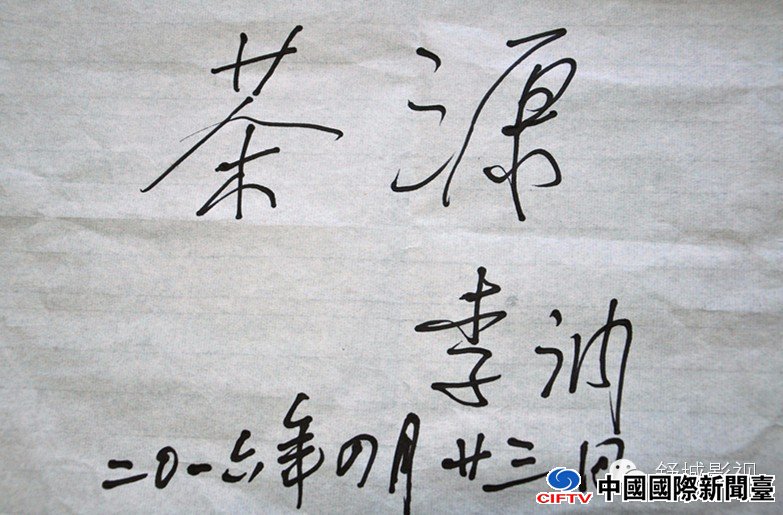 茶源
李訥
二〇一六年四月廿三日
舒城影视
CIFTV 中國國際新聞臺